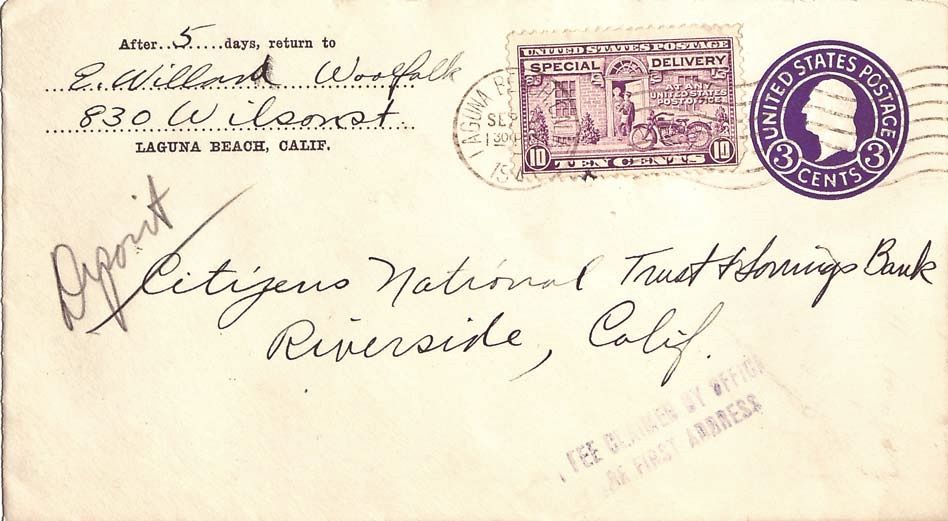 After..5.....days, return to
E. Willard Woolfolk
830 Wilson st.
LAGUNA BEACH, CALIF.
UNITED STATES POSTAGE
SPECIAL DELIVERY
AT ANY
UNITED STATES
POST OFFICE
10 TEN CENTS 10
LAGUNA
SEP
UNITED STATES POSTAGE
3 CENTS 3
Deposit
Citizens National Trust & Savings Bank
Riverside, Calif.
FEE CLAIMED BY OFFICE
OF FIRST ADDRESS